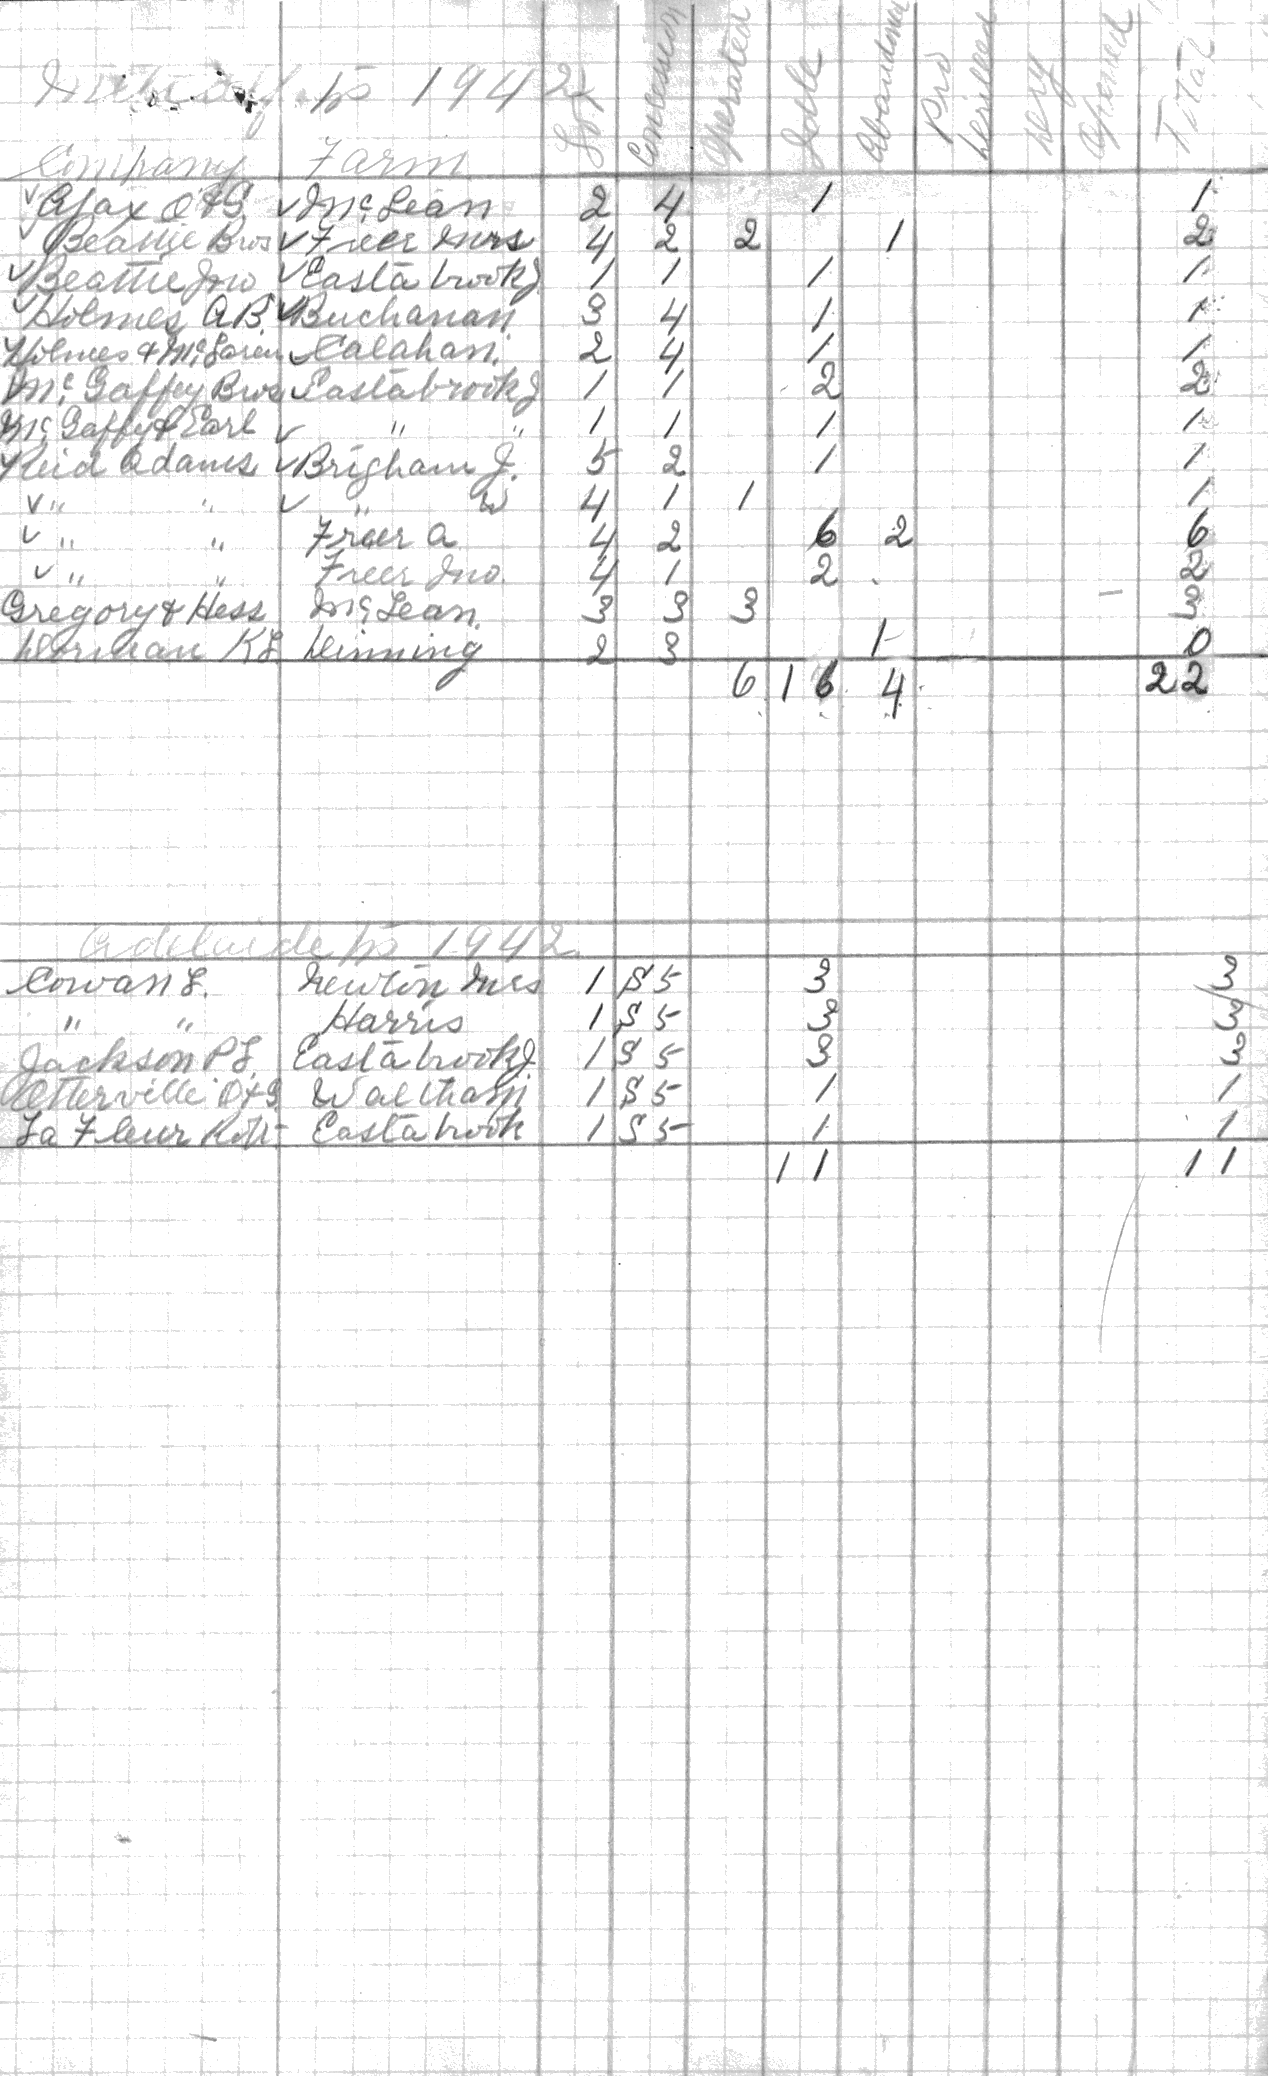 Tp 1942
Lot Concession Operated Idle Abandoned Pro Drilled Dry Opened Total
Company Farm
✓ Ajax O & G ✓ McLean 2 4 1 1
✓ Beattie Bros ✓ Freer Mrs 4 2 2 1 2
✓ Beattie Jno ✓ Eastabrook J 1 1 1 1
✓ Holmes A.B. ✓ Buchanan 3 4 1 1
Holmes & McLaren ✓ Calahan 2 4 1 1
McGaffey Bros ✓ Eastabrook J 1 1 2 2
McGaffey & Earl ✓ " " 1 1 1 1
Reid Adams ✓ Brigham J. 5 2 1 1
✓ " " ✓ " W 4 1 1 1
✓ " " Freer A 4 2 6 2 6
✓ " " Freer Jno. 4 1 2 2
Gregory & Hess McLean. 3 3 3 – 3
Dorman KL Dinning 2 3 1 0
6 16 4 22
Adelaide Tp 1942
Cowan L. Newton Mrs 1 S 5 3 3
" " Harris 1 S 5 3 3
Jackson P.L. Eastabrook J. 1 S 5 3 3
Otterville O & G Waltham 1 S 5 1 1
La Fleur Robt Eastabrook 1 S 5 1 1
11 11